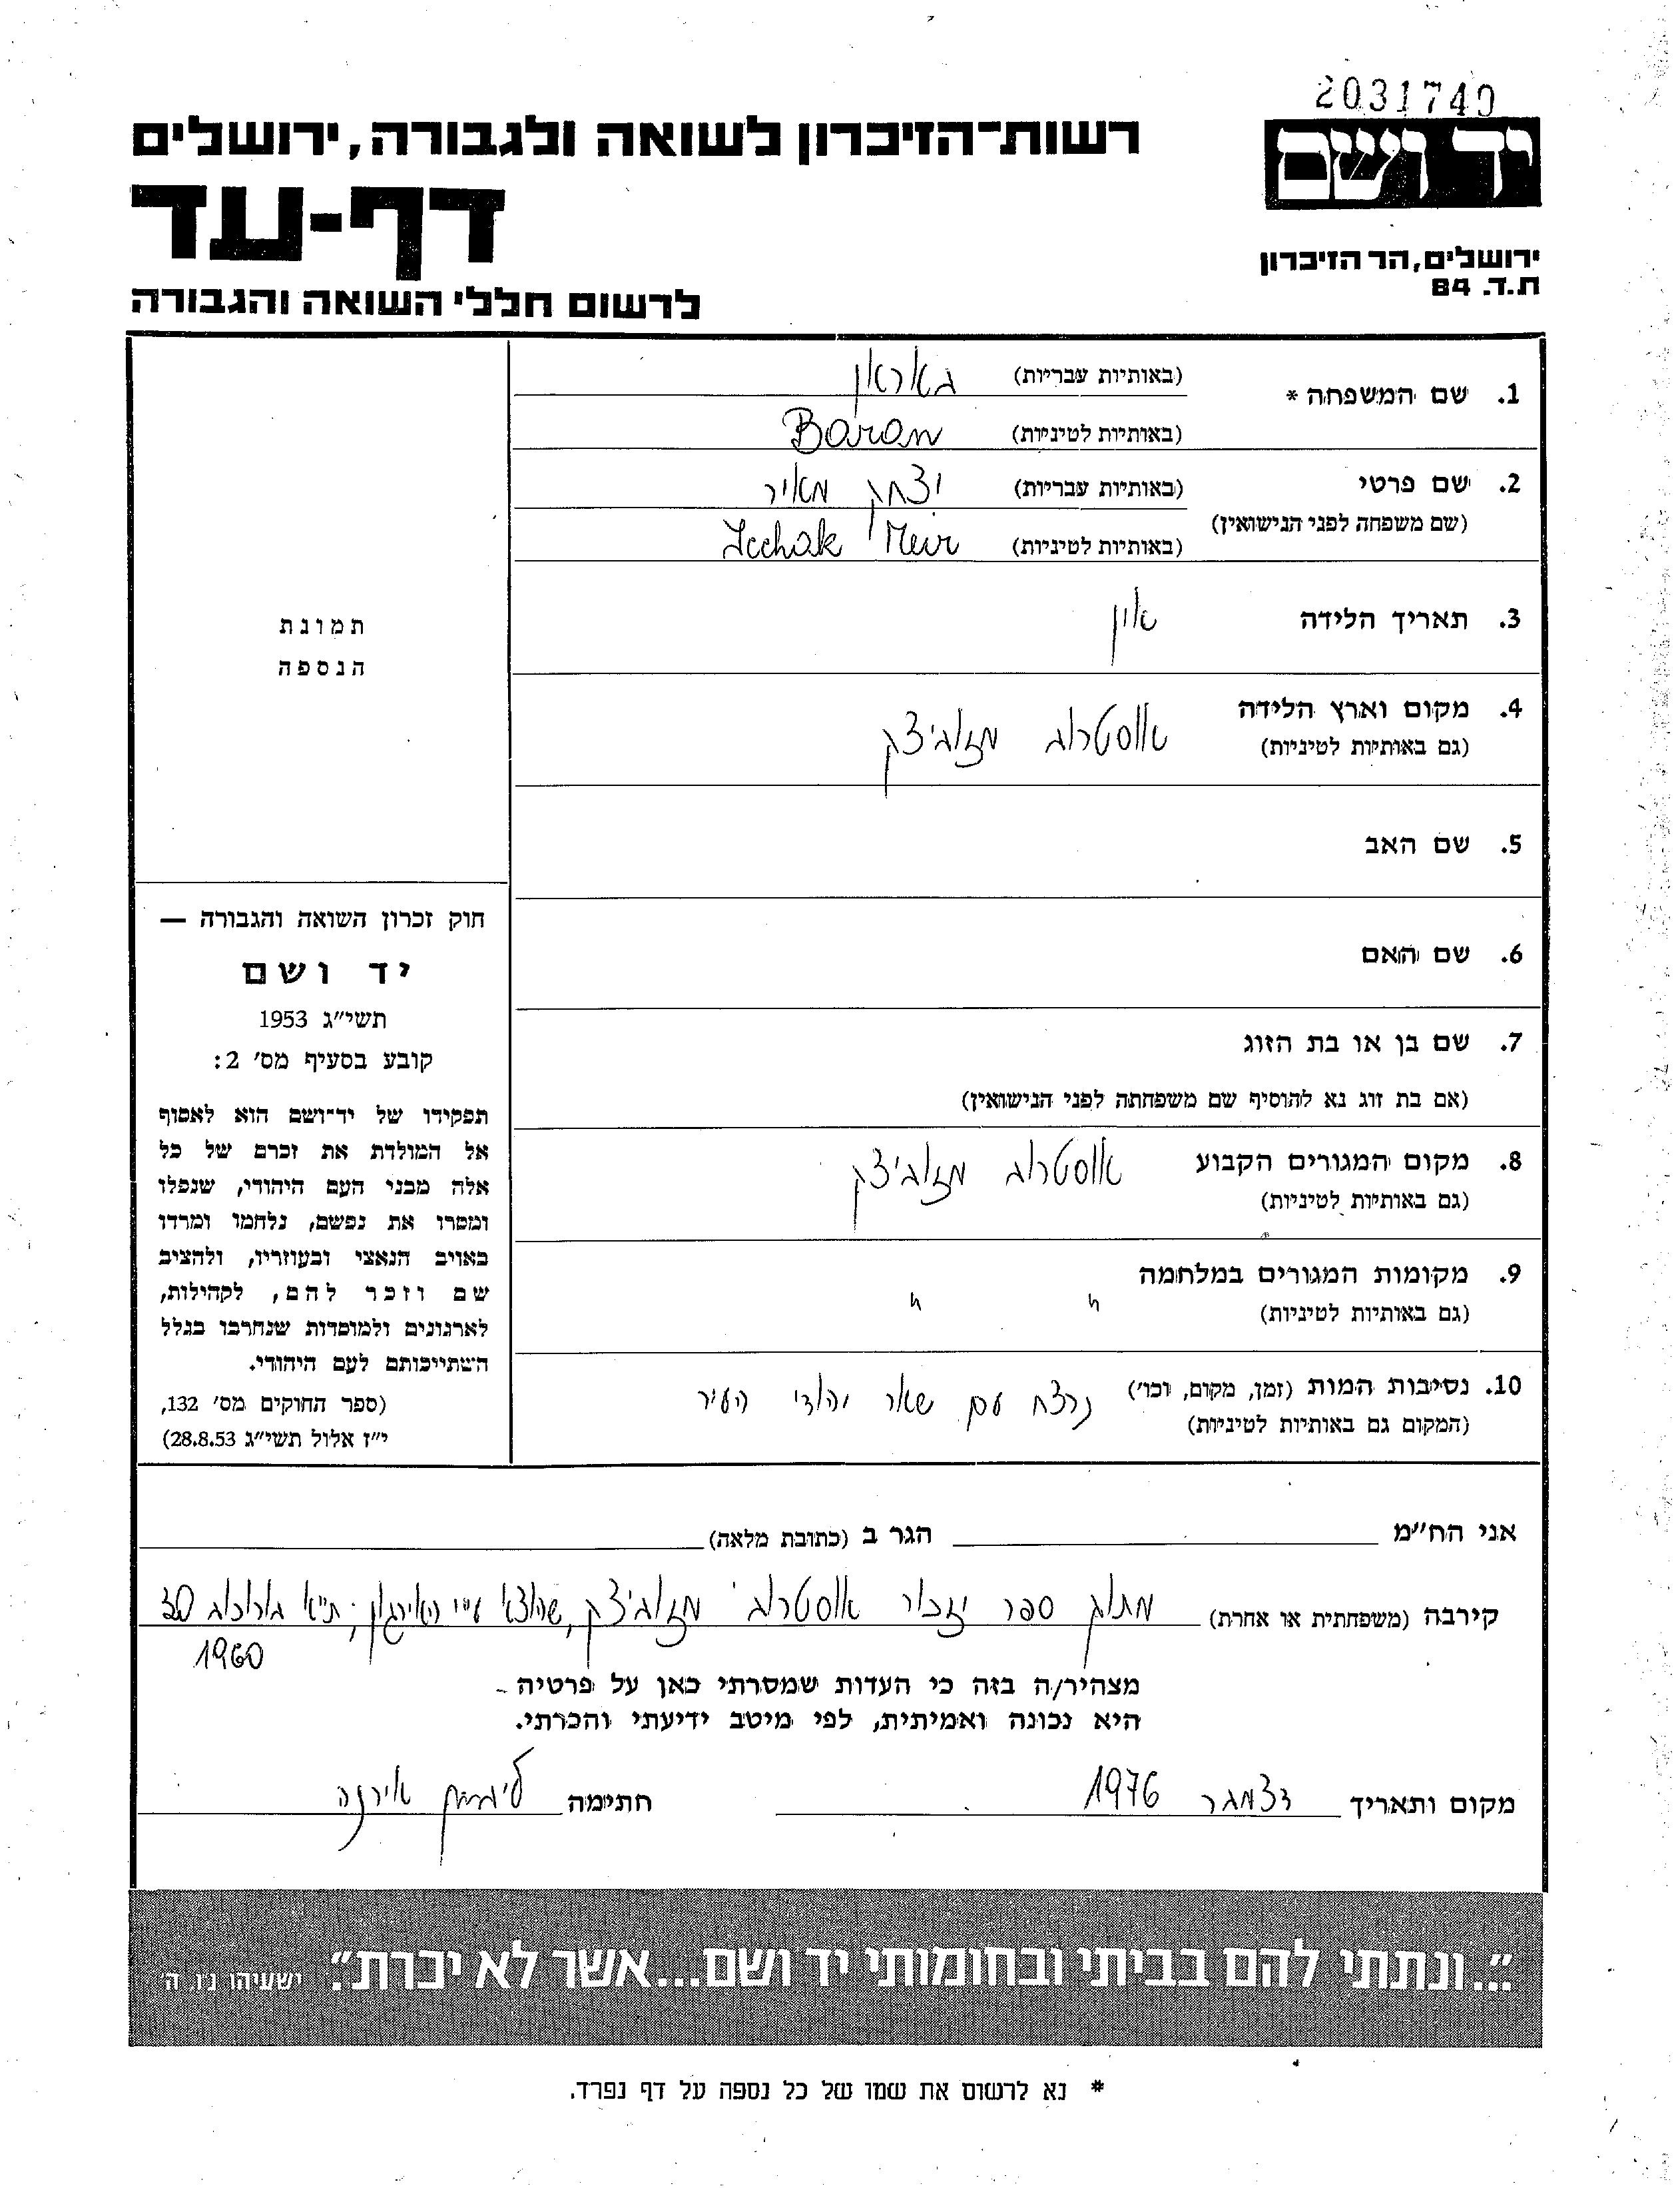 2031740
יד ושם
רשות־הזיכרון לשואה ולגבורה, ירושלים
דף-עד
ירושלים, הר הזיכרון
ת.ד. 84
לרשום חללי השואה והגבורה
1. שם המשפחה * (באותיות עבריות) באראן
(באותיות לטיניות) Baran
2. שם פרטי (באותיות עבריות) יצחק מאיר
(שם משפחה לפני הנישואין) (באותיות לטיניות) Icchak Meir
3. תאריך הלידה אין
4. מקום וארץ הלידה אוסטרוב מזוביצק
(גם באותיות לטיניות)
5. שם האב
6. שם האם
7. שם בן או בת הזוג
(אם בת זוג נא להוסיף שם משפחתה לפני הנישואין)
8. מקום המגורים הקבוע אוסטרוב מזוביצק
(גם באותיות לטיניות)
9. מקומות המגורים במלחמה " "
(גם באותיות לטיניות)
10. נסיבות המות (זמן, מקום, וכו') נרצח עם שאר יהודי העיר
(המקום גם באותיות לטיניות)
תמונת
הנספה
חוק זכרון השואה והגבורה —
יד ושם
תשי״ג 1953
קובע בסעיף מס׳ 2:
תפקידו של יד־ושם הוא לאסוף
אל המולדת את זכרם של כל
אלה מבני העם היהודי, שנפלו
ומסרו את נפשם, נלחמו ומרדו
באויב הנאצי ובעוזריו, ולהציב
שם וזכר להם, לקהילות,
לארגונים ולמוסדות שנחרבו בגלל
השתייכותם לעם היהודי.
(ספר החוקים מס׳ 132,
י״ז אלול תשי״ג 28.8.53)
אני הח״מ הגר ב (כתובת מלאה)
קירבה (משפחתית או אחרת) מתוך ספר יזכור אוסטרוב מזוביצק, שהוצא ע״י האירגון, ת״א בורוכוב 30
1960
מצהיר/ה בזה כי העדות שמסרתי כאן על פרטיה -
היא נכונה ואמיתית, לפי מיטב ידיעתי והכרתי.
מקום ותאריך דצמבר 1976 חתימה אירנה
"...ונתתי להם בביתי ובחומותי יד ושם...אשר לא יכרת". ישעיהו נ״ו, ה׳
* נא לרשום את שמו של כל נספה על דף נפרד.